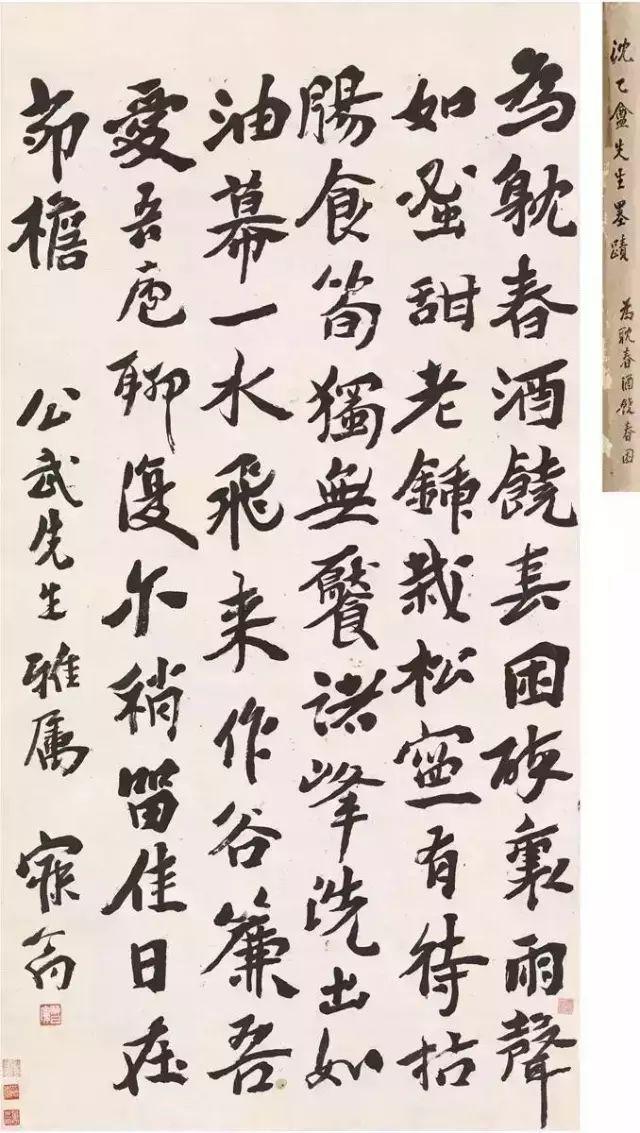 為躭春酒饒春困醉裏雨聲
如蜜甜老鍤栽松寧有待枯
腸食筍獨無饜諸峰洗出如
油幕一水飛來作谷簾吾
愛吾廬聊復尔稍留佳日在
茆檐 公武先生雅属 寐翁
沈乙盦先生墨蹟 為耽春酒饒春困